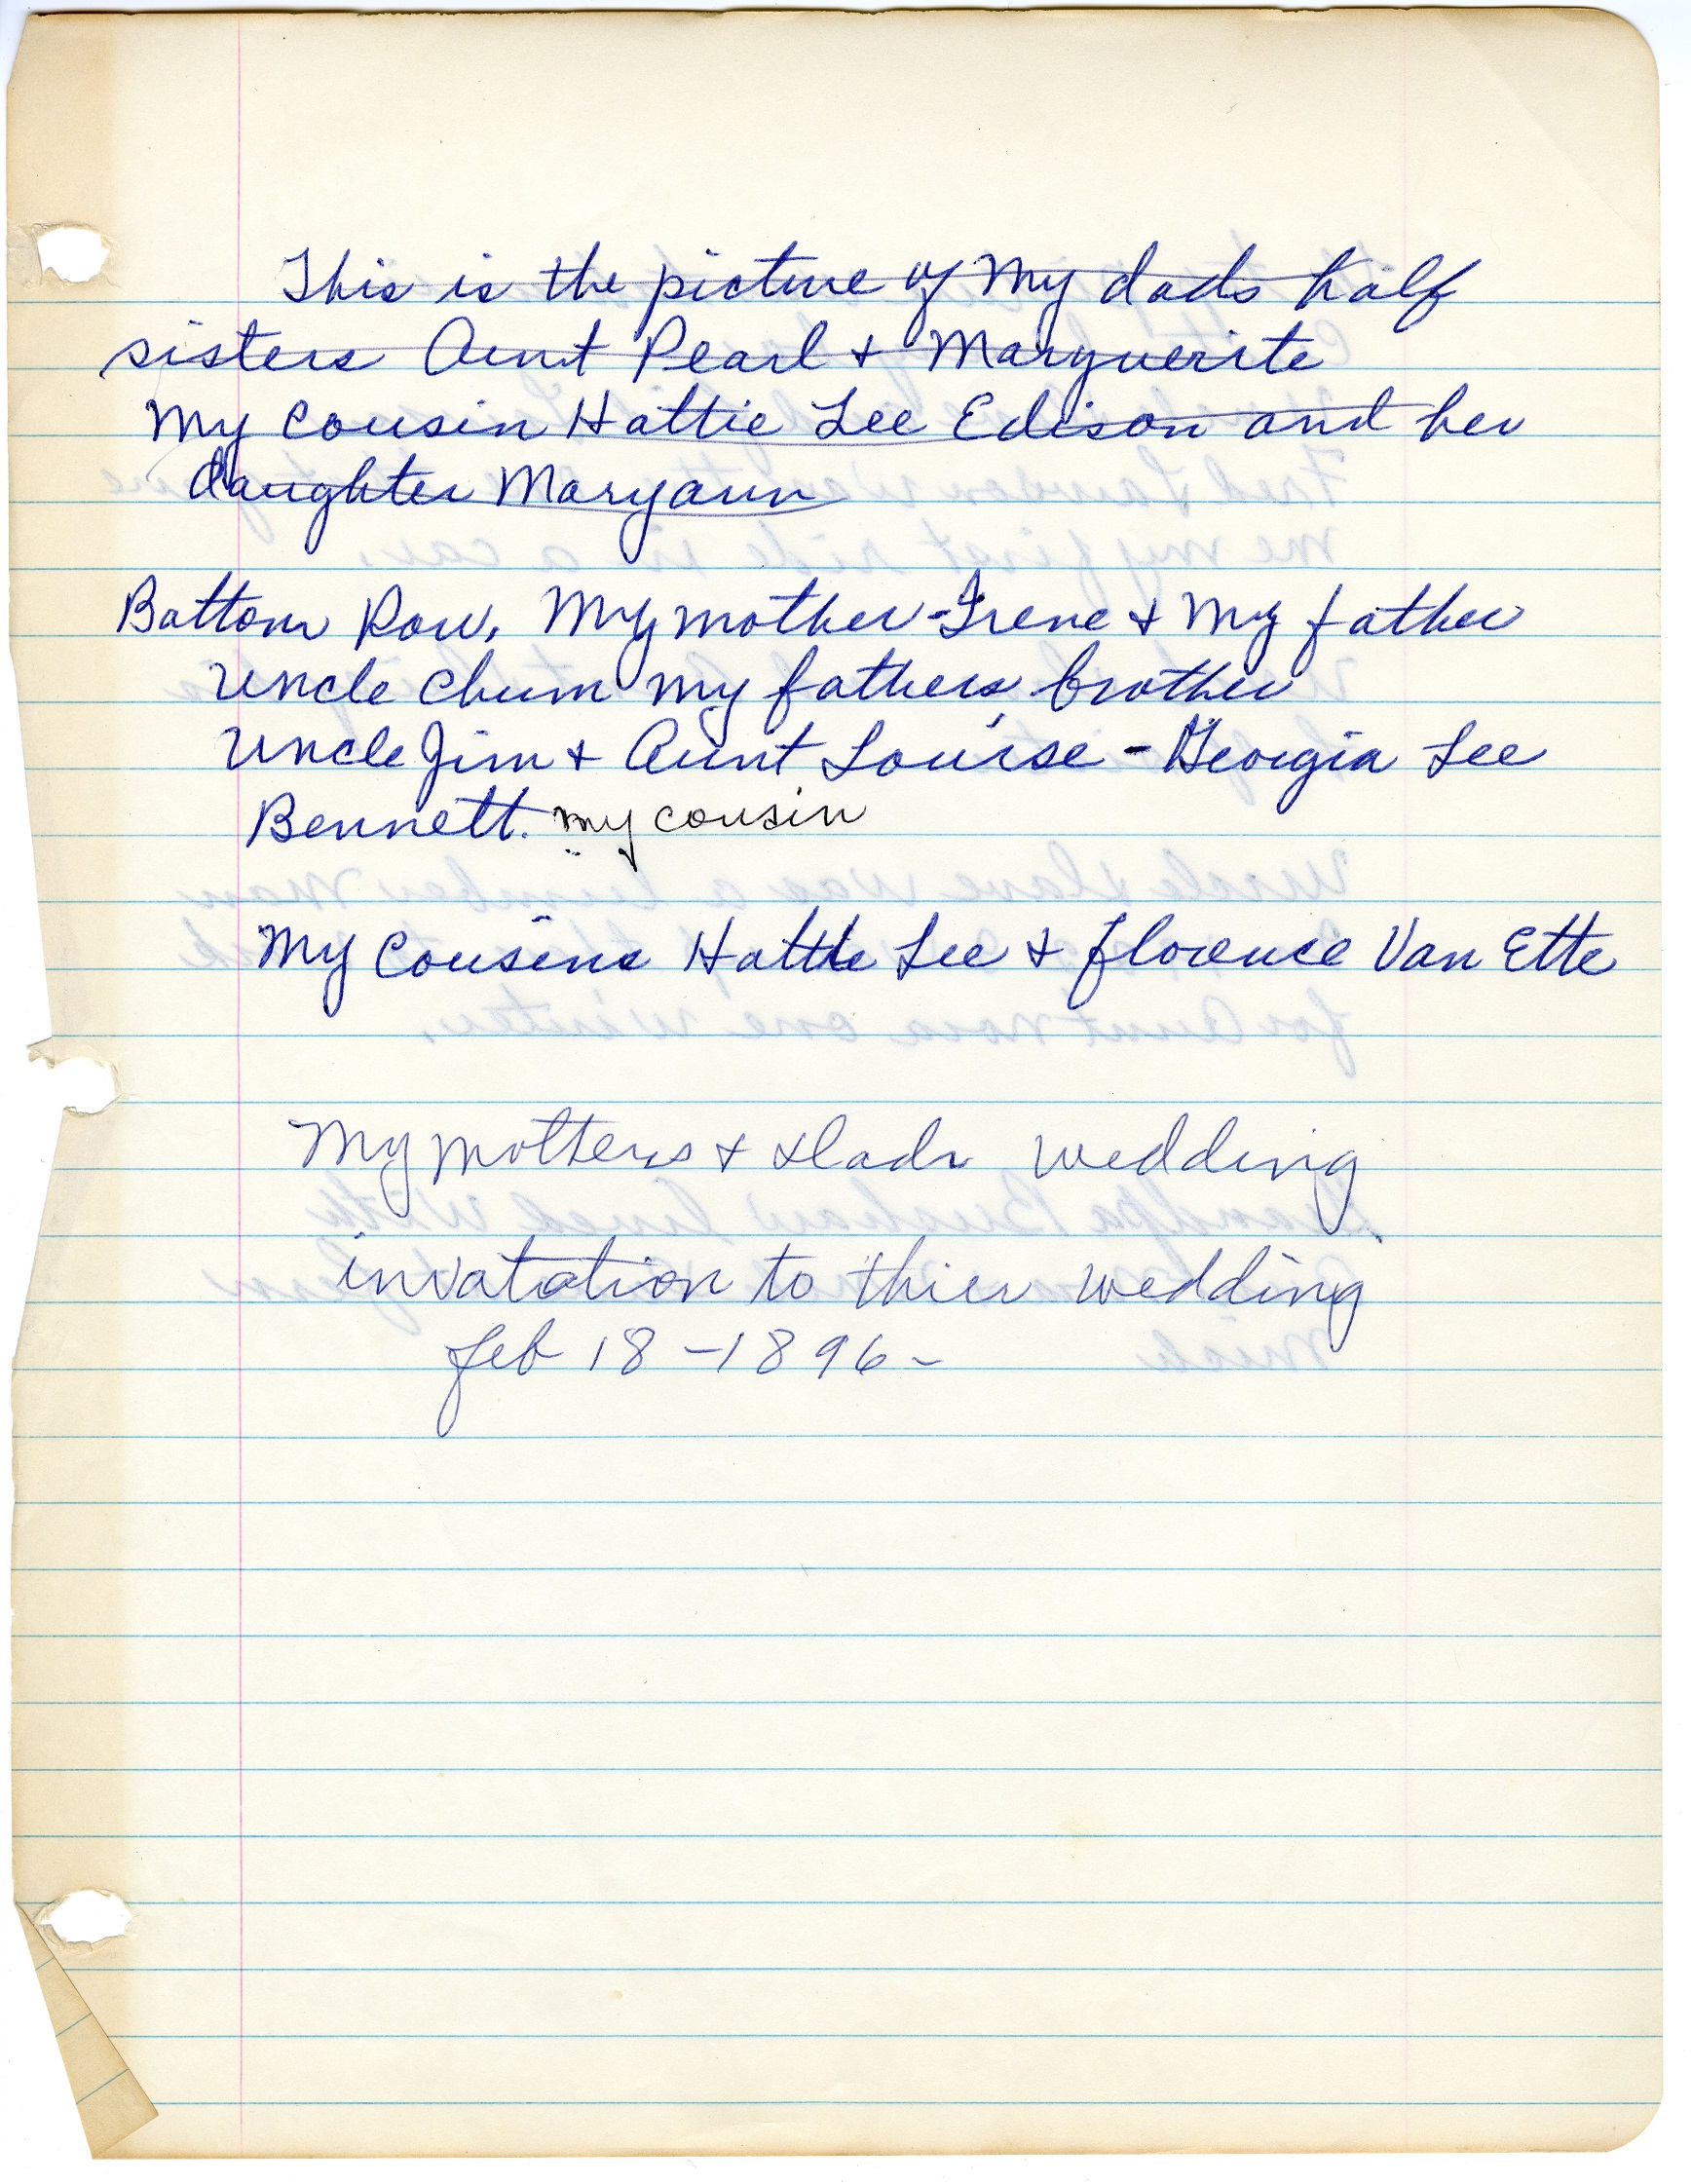 This is the picture of my dads half
sisters Aunt Pearl + Marguerite
My Cousin Hattie Lee Edison and her
daughter Maryann
Bottom Row, My mother - Irene + My father
Uncle Chum my fathers brother
Uncle Jim + Aunt Louise - Georgia Lee
Bennett. my cousin
My Cousins Hattie Lee + Florence Van Ette
My mothers + Dads wedding
invatation to thier wedding
Feb 18 - 1896 -